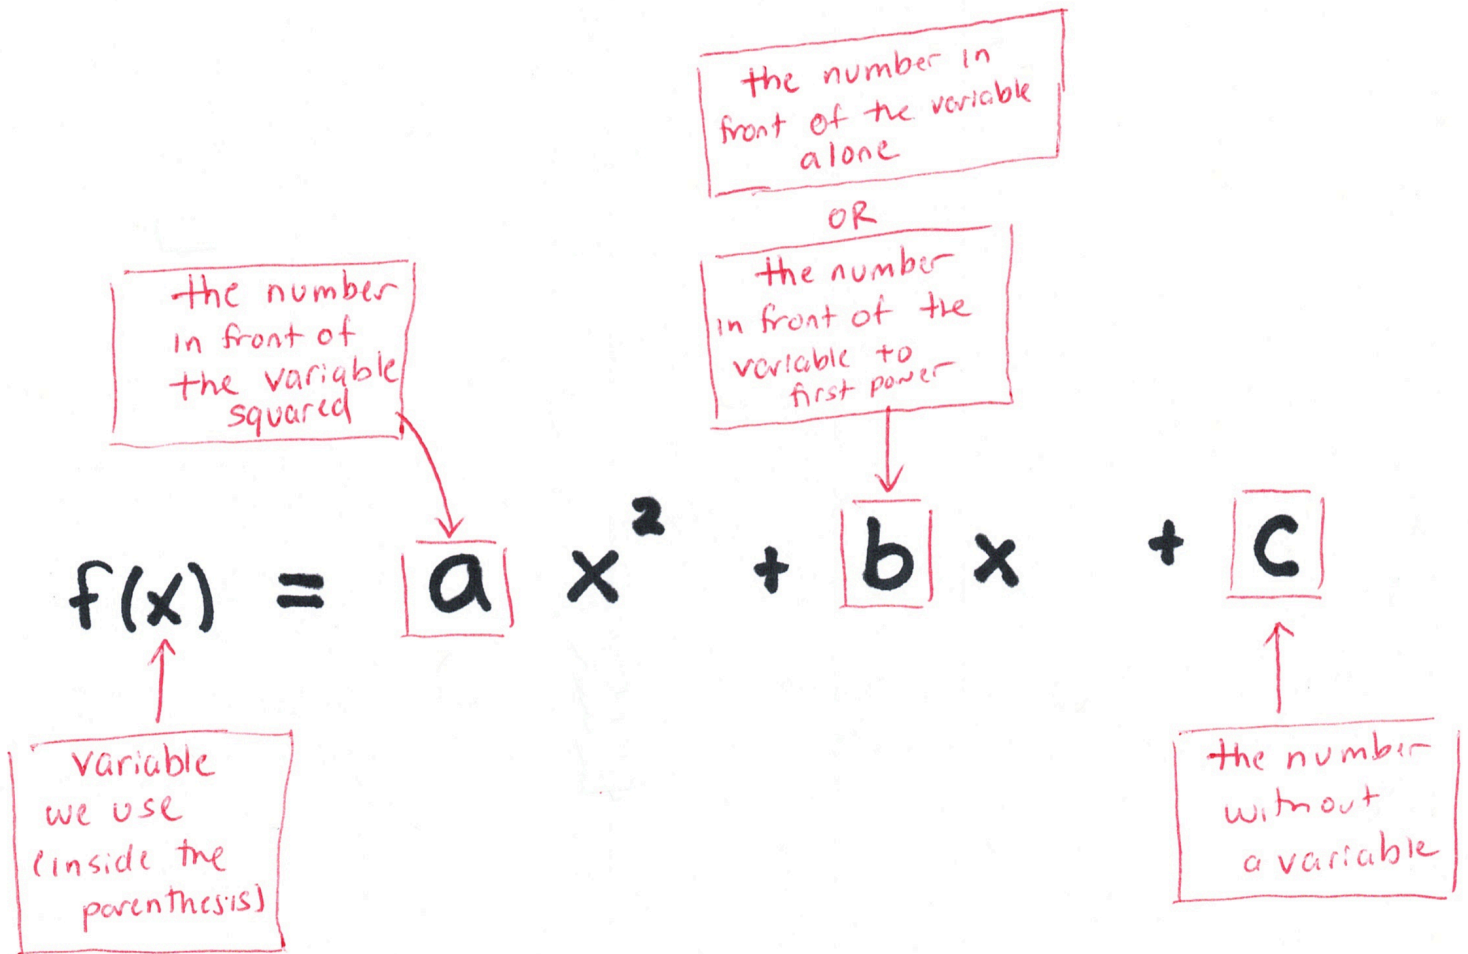 the number in
front of the variable
alone
OR
the number
in front of the
variable to
first power
the number
in front of
the variable
squared
f(x) = a x² + b x + c
variable
we use
(inside the
parenthesis)
the number
without
a variable